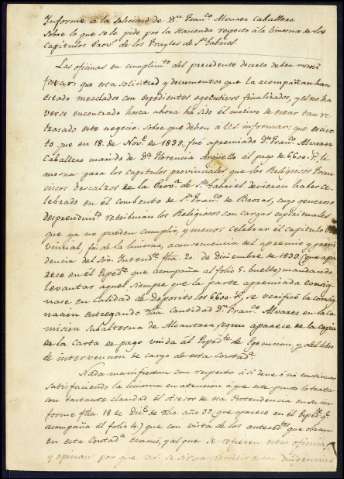 Informe a la solicitud de Dn. Franco. Alvarez Caballero
Sobre lo que se le pide por la Hacienda respecto á la limosna de los
Capitulos Prov. de los Frayles de Sn. Gabriel
Las oficinas en cumplimto. del precedente decreto deben
que esta solicitud y documentos que la acompañan han
estado mezclados con espedientes egecutivos finalizados, y el no ha
verse encontrado hasta ahora ha sido el motivo de estar tan re
trasado este negocio. Sobre que deben á V.S. informar: que es cier
to, que en 18 de Nove. de 1838, fue apremiado Dn. Franco. Alvarez
Caballero marido de Da. Florencia al pago de 6600 rs. li
mosna para los capitulos provinciales que los Religiosos Fran
ciscos descalzos de la Prova. de Sn. Gabriel devieran haber ce
lebrado en el combento de Sn. Franco. de Brozas, cuyo generoso
desprendimto. retribuian los Religiosos con cargas espirituales
que ya no pueden cumplir, y menos celebrar el capitulo pro
vincial, fin de la limosna, á consecuencia del apremio y provi
dencia del Sor. Intendte. fha. 20 de diciembre de 1838 (que apa
rece en el Espte. que acompaña al folio 5. buelto) mandando
levantar aquel siempre que la parte apremiada consig
nase en calidad de deposito los 6600 rs., se verificó la consig
nacion entregando dha. cantidad Dn. Franco. Alvarez en la co
mision subalterna de Alcantara, segun aparece de la copia
de la carta de pago unida al Espte. de Egecucion, y del libro
de intervencion de cargo de esta Contadª.
Nada manifiestan con respecto á si deve ó no continuar
satisfaciendo la limosna en atencion á que este punto lo trata
con bastante claridad el Asesor de esa Yntendencia en su in
forme fha. 18 de Dice. de dho. año 38 que aparece en el Espte. q.
acompaña al folio 4 y que con vista de los antecedtes. que obran
en esta Contadª. evacuó, y al que se refieren estas oficinas,
y opinan por que